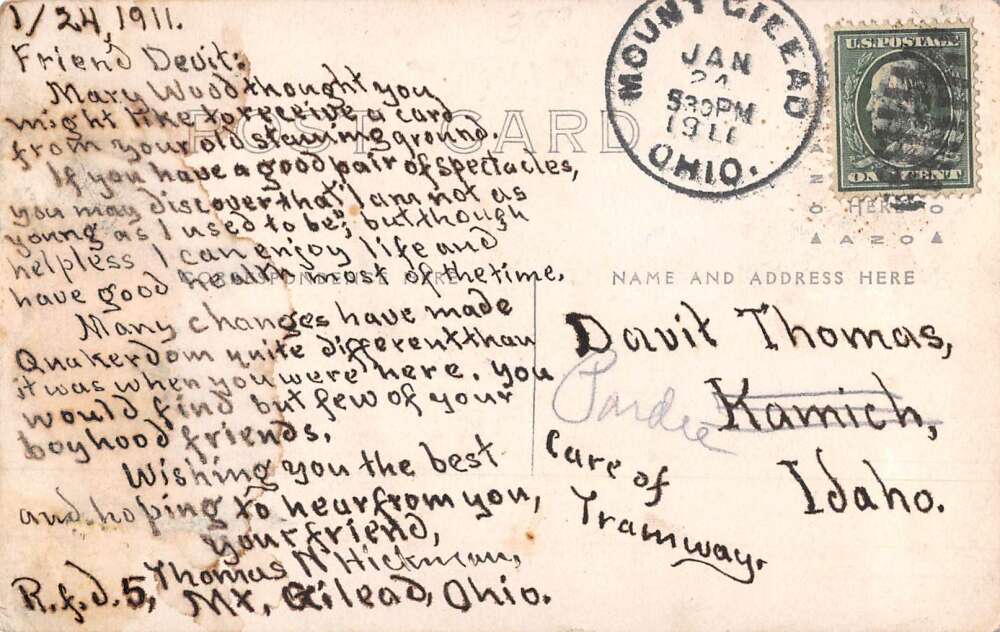 1/24, 1911.
Friend Devit:
Mary Wood thought you
might like to receive a card
from your old stamping ground.
If you have a good pair of spectacles,
you may discover that "I am not as
young as I used to be"; but though
helpless I can enjoy life and
have good health most of the time.
Many changes have made
Quakerdom quite different than
it was when you were here. You
would find but few of your
boyhood friends.
Wishing you the best
and hoping to hear from you,
your friend,
Thomas N Hickman,
R.f.d. 5, Mt, Gilead, Ohio.
POST CARD
CORRESPONDENCE HERE
MOUNT GILEAD
JAN
24
530PM
1911
OHIO.
U.S. POSTAGE
ONE CENT
HERE
AZO
NAME AND ADDRESS HERE
Davit Thomas,
Pardee
Kamich,
Idaho.
Care of
Tramway.